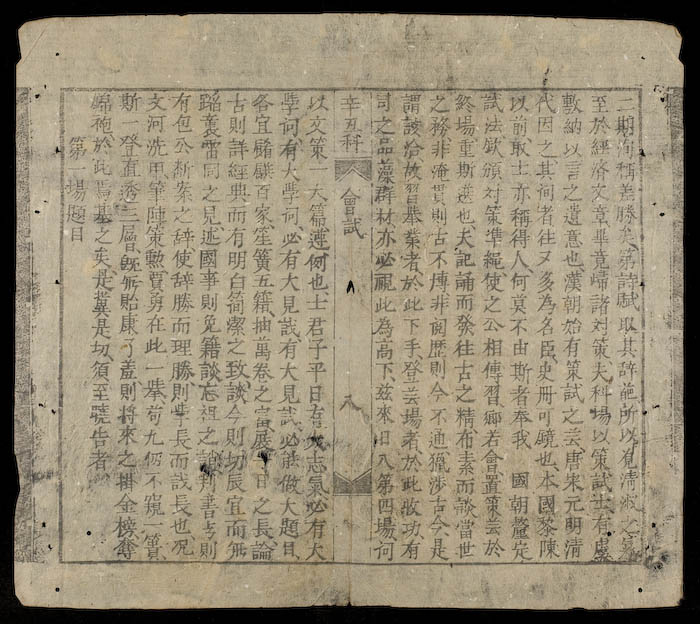 二期洵稱善勝矣第詩賦取其辞葩所以覓清淑之氣
至於經濟文章畢竟歸諸對策夫科場以策試士有虞
敷納以言之遺意也漢朝始有策試之云唐宋元明清
代因之其间者往又多為名臣史册可鏡也本國黎陳
以前取士亦稱得人何莫不由斯者奉我 國朝釐定
試法欽頒對策準繩使之公相傳習鄉若會置策芸於
終場重斯選也夫記誦而發往古之精布素而談當世
之務非淹貫則古不博非閱歷則今不通獵涉古今是
謂該洽故習基業者於此下手登芸場者於此收功有
司之品藻群材亦必視此為高下茲來日八第四場何
辛丑科 會試 八
以文策一大篇遵何也士君子平日有大志氣必有大
學问有大學问必有大見識有大見識必能做大題目
各宜百家笙簧五籍抽萬卷之富展一日之長論
古則詳經典而有明白简潔之致談今則切辰宜而無
蹈襲雷同之見述國事則免籍談忘祖之誚判書考則
有包公斷案之辞使辞勝而理勝則學長而識長也况
文河洗甲筆陣策勳賈勇在此一舉苟九仭不窺一簣
斯一登直透三層旣無貽康了羞則將來之掛金榜奪
錦袍於此焉基之矣是冀是切須至曉告者
第一場題目